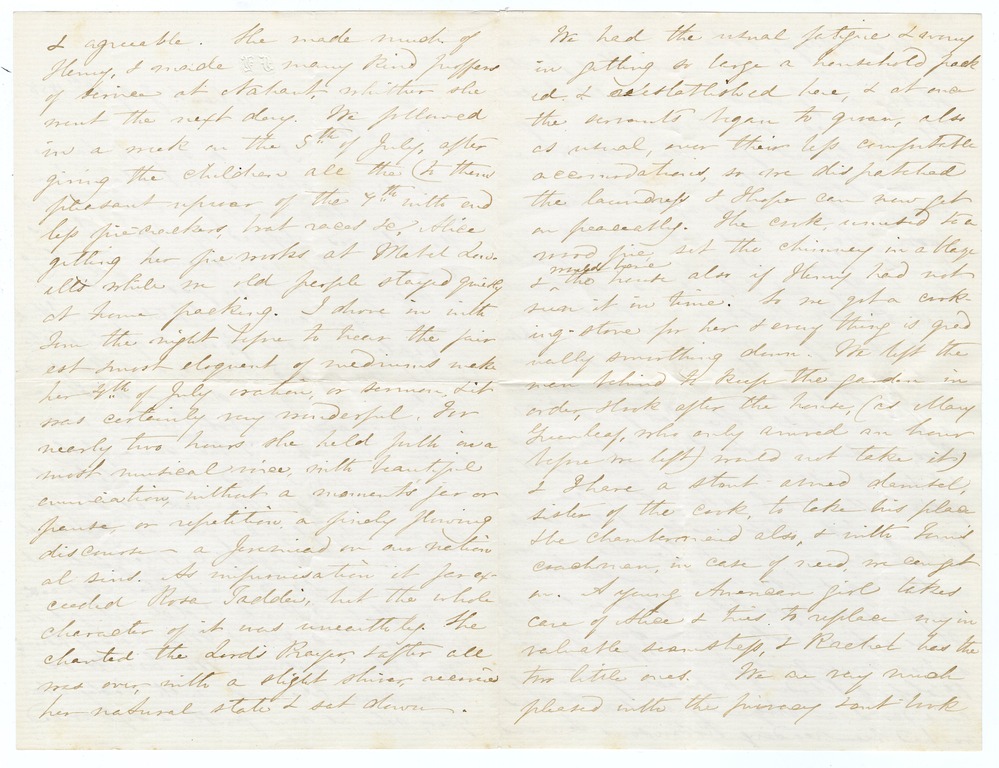 & agreeable. She made much of
Henry, & made many kind proffers
of service at Nahant, whither she
went the next day. We followed
in a week on the 5th of July, after
giving the children all the (to them
pleasant uproar of the 4th with end
less fire-crackers, boat races &c, Alice
getting her fire works at Mabel Low-
ells while we old people stayed quietly
at home packing. I drove in with
Tom the night before to hear the fair
est & most eloquent of mediums make
her 4th of July oration, or sermon, & it
was certainly very wonderful. For
nearly two hours she held forth in a
most musical voice, with beautiful
enunciation, without a moment's jar or
pause, or repetition, a finely flowing
discourse — a Jeremiad on our nation
al sins. As improvisation it far ex-
ceeded Rosa Taddei, but the whole
character of it was unearthly. She
chanted the Lord's Prayer, & after all
was over, with a slight shiver, received
her natural state & sat down.
We had the usual fatigue & worry
in getting so large a household pack
ed & established here, & at once
the servants began to groan, also
as usual, over their less comfortable
accomodations, so we dispatched
the laundress & I hope can now get
on peaceably. The cook, unused to a
wood fire, set the chimney in a blaze
would have
& the house also if Henry had not
seen it in time. So we got a cook-
ing-stove for her & every thing is grad
ually smoothing down. We left the
man behind to keep the garden in
order, & look after the house, (as Mary
Greenleaf, who only arrived an hour
before we left) would not take it)
& I have a stout armed damsel,
sister of the cook, to take his place
& the chambermaid also, & with Tom's
coachman, in case of need, we can get
on. A young American girl takes
care of Alice & this. to replace my in
valuable seamstress, & Rachel has the
two little ones. We are very much
pleased with the privacy & out look